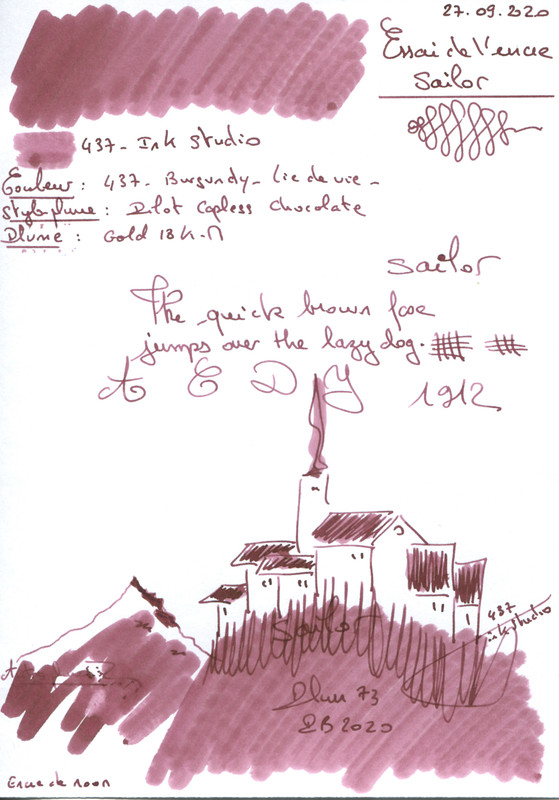 27.09.2020
Essai de l'encre
Sailor
437- Ink Studio
Couleur : 437- Burgundy- Lie de vie-
Stylo plume : Pilot Capless Chocolate
Plume : Gold 18 K-M
Sailor
The quick brown foxe
jumps over the lazy dog.
A E D Y 1912
Sailor
437
ink studio
Plum 73
EB 2020
Encre de noon